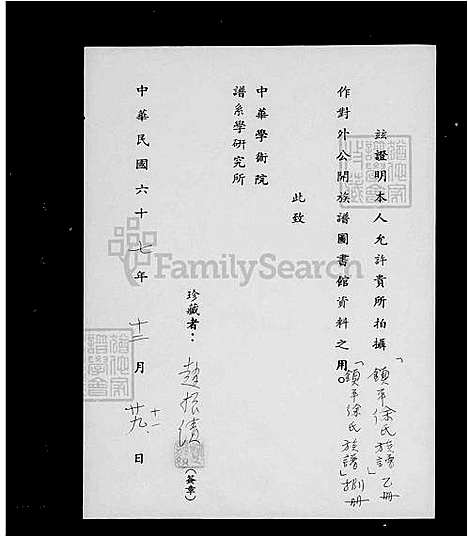 茲證明本人允許貴所拍攝「鎮平徐氏族譜」乙冊
「鎮平徐氏族譜」捌冊
作對外公開族譜圖書館資料之用。
此致
中華學術院
譜系學研究所
珍藏者：趙振績
（簽章）
中華民國六十七年十二月廿九日
FamilySearch